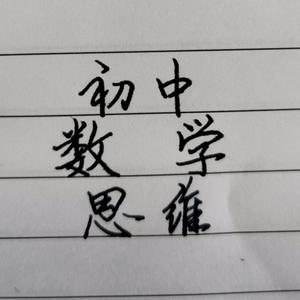 初中
数学
思维